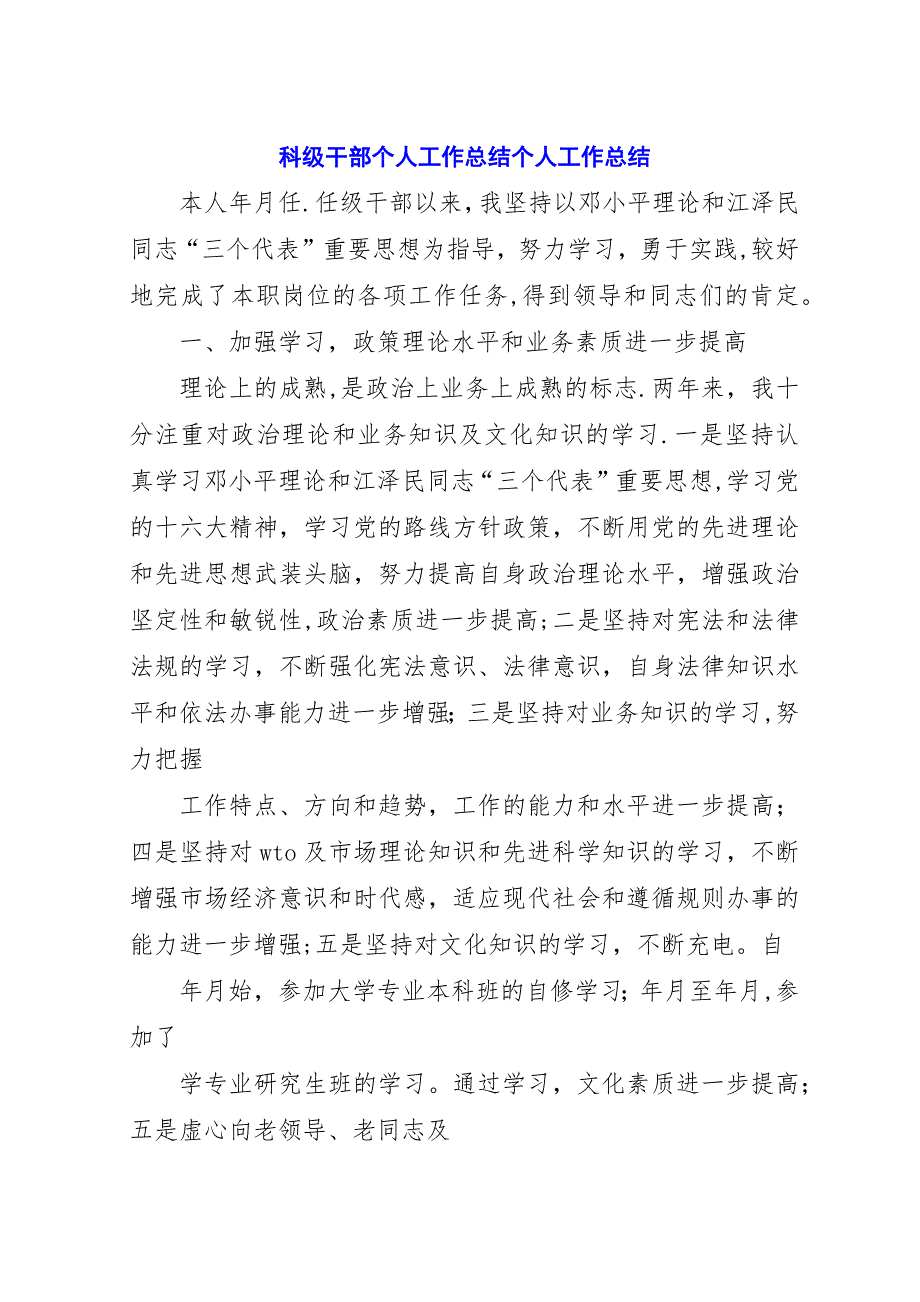 科级干部个人工作总结个人工作总结
本人年月任.任级干部以来,我坚持以邓小平理论和江泽民
同志“三个代表”重要思想为指导，努力学习，勇于实践,较好
地完成了本职岗位的各项工作任务,得到领导和同志们的肯定。
一、加强学习，政策理论水平和业务素质进一步提高
理论上的成熟,是政治上业务上成熟的标志.两年来，我十
分注重对政治理论和业务知识及文化知识的学习.一是坚持认
真学习邓小平理论和江泽民同志“三个代表”重要思想,学习党
的十六大精神，学习党的路线方针政策，不断用党的先进理论
和先进思想武装头脑，努力提高自身政治理论水平，增强政治
坚定性和敏锐性,政治素质进一步提高;二是坚持对宪法和法律
法规的学习，不断强化宪法意识、法律意识，自身法律知识水
平和依法办事能力进一步增强；三是坚持对业务知识的学习,努
力把握
工作特点、方向和趋势，工作的能力和水平进一步提高；
四是坚持对wto及市场理论知识和先进科学知识的学习，不断
增强市场经济意识和时代感，适应现代社会和遵循规则办事的
能力进一步增强;五是坚持对文化知识的学习，不断充电。自
年月始，参加大学专业本科班的自修学习；年月至年月,参
加了
学专业研究生班的学习。通过学习，文化素质进一步提高；
五是虚心向老领导、老同志及